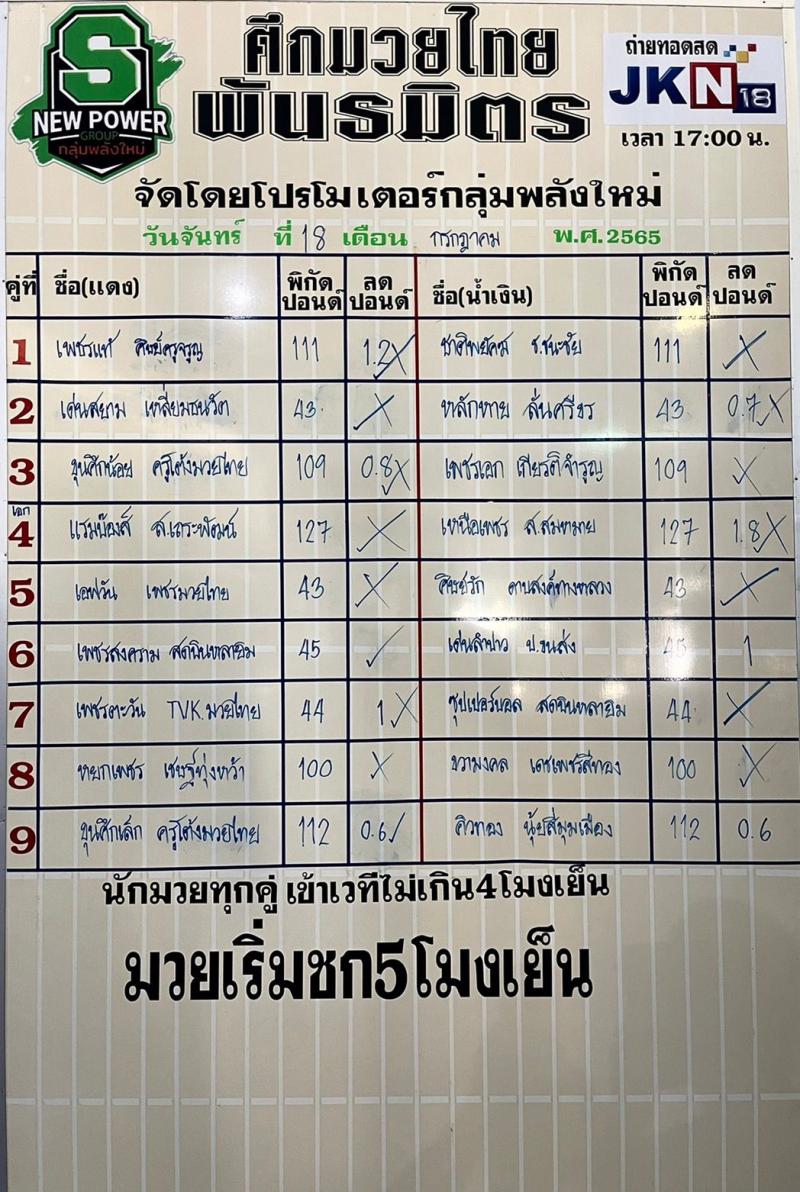 S
NEW POWER
GROUP
กลุ่มพลังใหม่
ศึกมวยไทย
พันธมิตร
ถ่ายทอดสด
JKN18
เวลา 17:00 น.
จัดโดยโปรโมเตอร์กลุ่มพลังใหม่
วันจันทร์ ที่ 18 เดือน กรกฎาคม พ.ศ.2565
คู่ที่ ชื่อ(แดง) พิกัดปอนด์ ลดปอนด์ ชื่อ(น้ำเงิน) พิกัดปอนด์ ลดปอนด์
1 เพชรแท้ ศิษย์ครูจรูญ 111 1.2 ชาติพยัคฆ์ ช.ชนะชัย 111
2 เด่นสยาม เหลี่ยมธนวัต 43 หลักหาย ลั่นศรีจร 43 0.7
3 ขุนศึกน้อย ครูโต้งมวยไทย 109 0.8 เพชรเอก เกียรติจำรูญ 109
เอก
4 แรมบ๊องส์ ส.เถระพัฒน์ 127 เหนือเพชร ส.สมหมาย 127 1.8
5 เอฟวัน เพชรมวยไทย 43 ศิษย์รัก 43
6 เพชรสงคราม สดชินหลายิม 45 เด่นลำปาว ป.ขนส่ง 45 1
7 เพชรตะวัน TVK.มวยไทย 44 1 ซุปเปอร์บอล สดชินหลายิม 44
8 หยกเพชร เชษฐ์ทุ่งหว้า 100 ขวามงคล เดชเพชรสีทอง 100
9 ขุนศึกเล็ก ครูโต้งมวยไทย 112 0.6 คิวทอง นุ้ยสี่มุมเมือง 112 0.6
นักมวยทุกคู่ เข้าเวทีไม่เกิน4โมงเย็น
มวยเริ่มชก5โมงเย็น